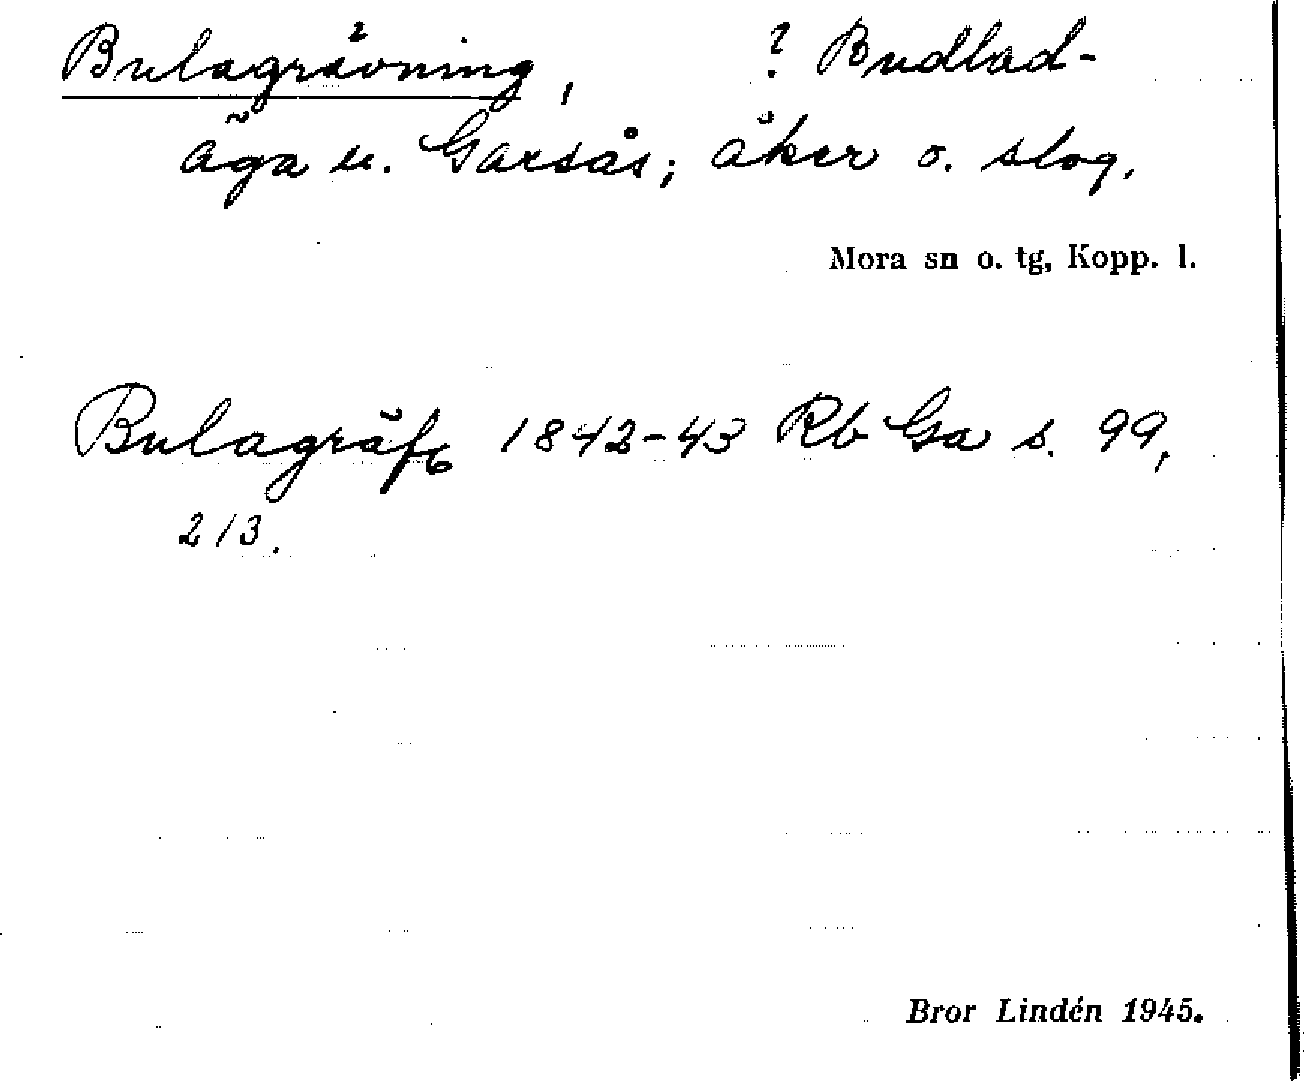 Bulagrävning, ? Budlad-
äga u. Garsås; åker o. slog.
Mora sn o. tg, Kopp. l.
Bulagräfn 1842-43 Rb Ga s. 99,
213.
Bror Lindén 1945.